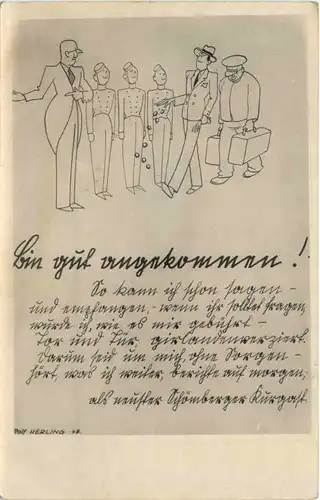 Bin gut angekommen!
So kann ich schon sagen -
und empfangen, - wenn ihr solltet fragen,
wurde ich, wie es mir gebührt -
Tor und Tür, girlandenverziert.
Darum seid um mich, ohne Sorgen -
hört, was ich weiter, berichte auf morgen,
als neuster Schömberger Kurgast
Rolf HERLING 48